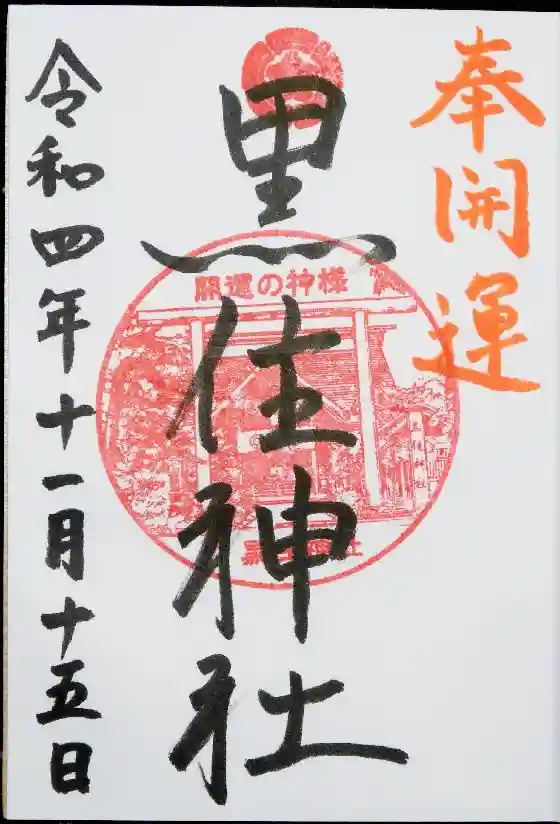 奉開運
黒住神社
開運の神様
黒住神社
令和四年十一月十五日